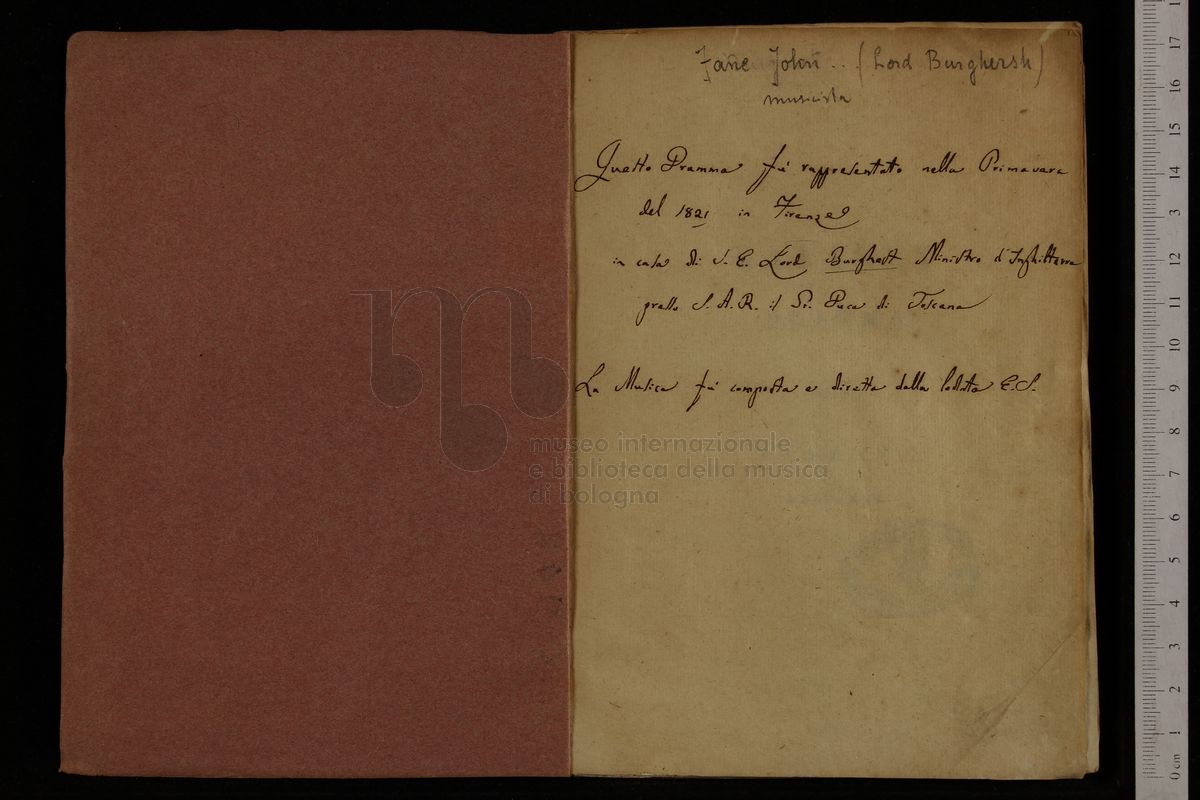 Fane John .. (Lord Burghersh)
musicista
Questo Dramma fu rappresentato nella Primavera
del 1821 in Firenze
in casa di S. E. Lord Burghest Ministro d'Inghilterra
presso S. A. R. il Duca di Toscana
La Musica fu composta e diretta dalla lodata E. S.
museo internazionale
e biblioteca della musica
di bologna
17
16
15
14
13
12
11
10
9
8
7
6
5
4
3
2
1
0 cm